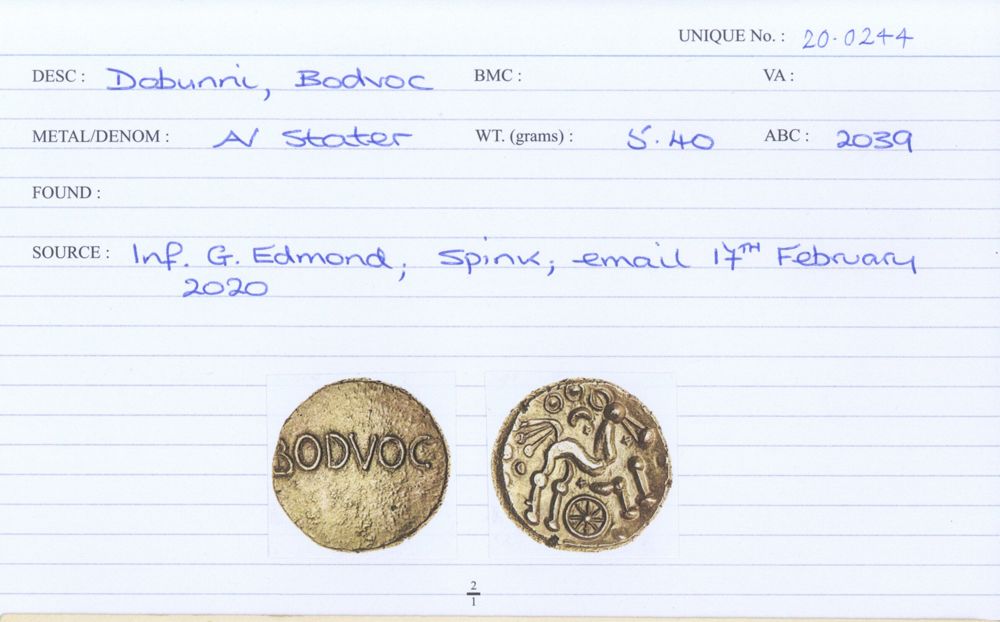 UNIQUE No. : 20.0244
DESC : Dobunni, Bodvoc BMC : VA :
METAL/DENOM : AV Stater WT. (grams) : 5.40 ABC : 2039
FOUND :
SOURCE : Inf. G. Edmond; Spink; email 17TH February
2020
BODVOC
2
1